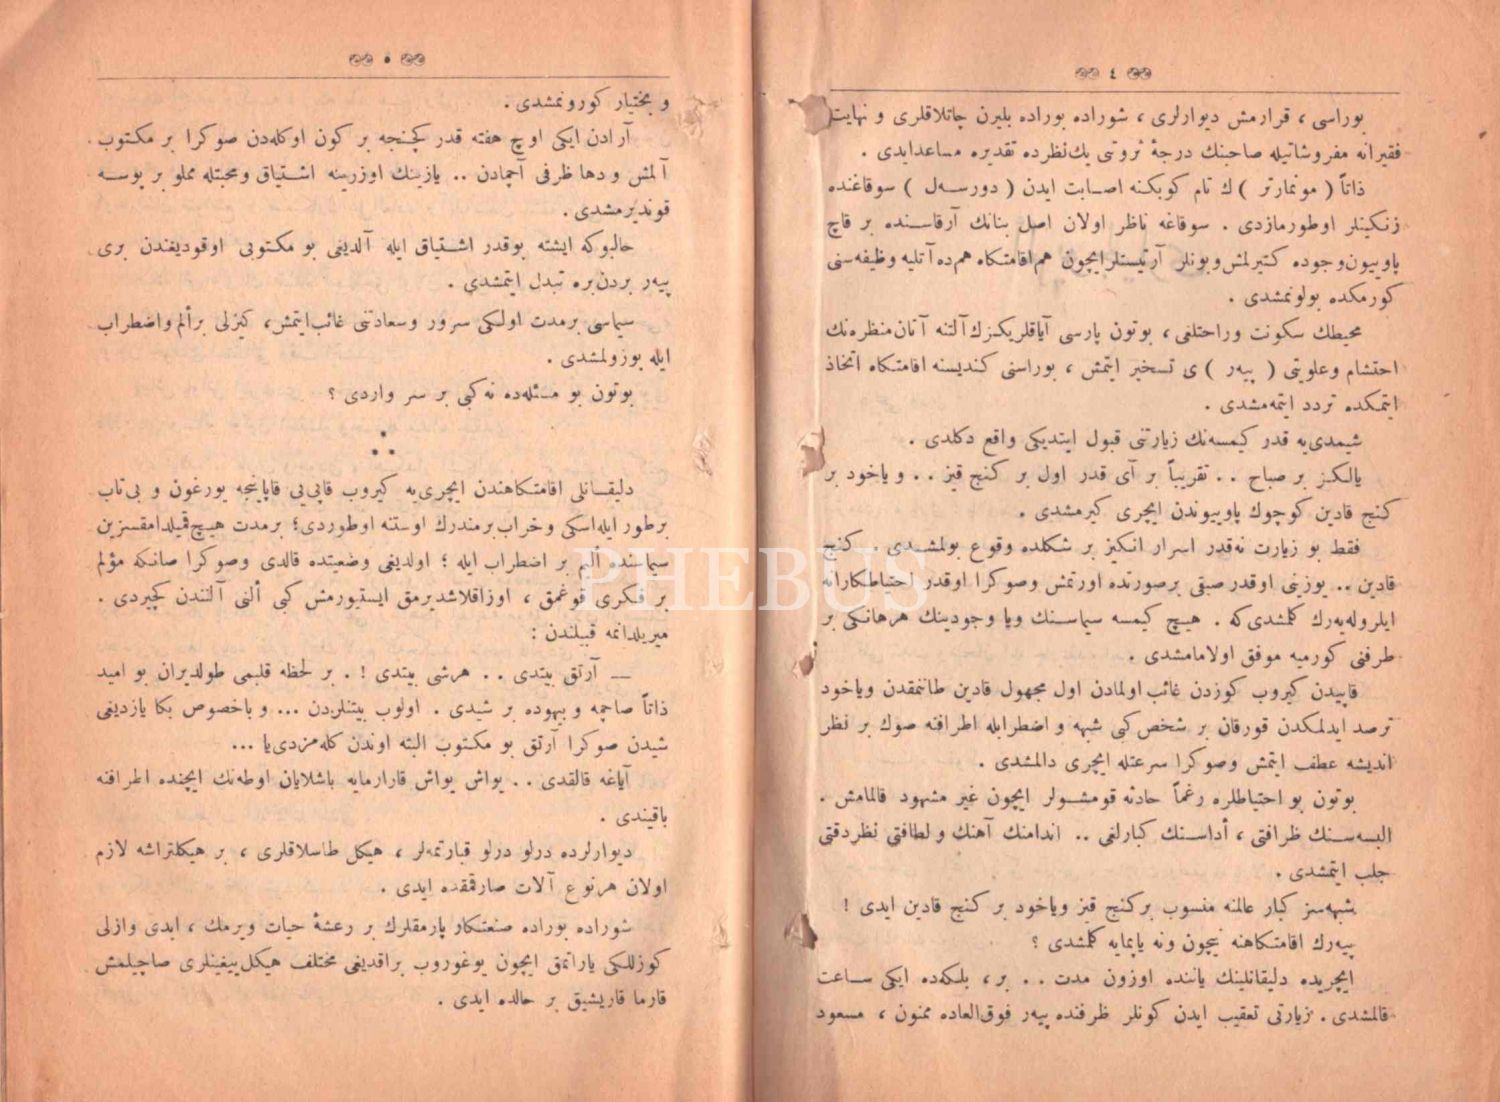 ٤
بوراسی ، قرارمش دیوارلری ، شوراده بوراده بلیرن چاتلاقلری و نهایت
فقیرانه مفروشاتیله صاحبنك درجهٔ ثروتی یك‌نظرده تقدیره مساعدایدی .
ذاتاً ( مونمارتر ) ك تام كوبكنه اصابت ایدن ( دورسه‌ل ) سوقاغنده
زنكینلر اوطورمازدی . سوقاغه ناظر اولان اصل بنانك آرقاسنده بر قاچ
پاوییون‌وجوده كتیرلمش‌وبونلر آرتیستلرایچون هم‌اقامتكاه هم‌ده آتلیه وظیفه‌سنی
كورمكده بولونمشدی .
محیطك سكونت وراحتلغی ، بوتون پارسی آیاقلریكزك‌آلتنه آتان‌منظره‌نك
احتشام وعلویتی ( پیه‌ر ) ی تسخیر ایتمش ، بوراسنی كندیسنه اقامتكاه اتخاذ
ایتمكده تردد ایتمه‌مشدی .
شیمدی‌یه قدر كیمسه‌نك زیارتنی قبول ایتدیكی واقع دكلدی .
یالكز بر صباح . . تقریباً بر آی قدر اول بر كنج قیز . . و یاخود بر
كنج قادین كوچوك پاوییوندن ایچری كیرمشدی .
فقط بو زیارت نه‌قدر اسرار انكیز بر شكلده وقوع بولمشدی . كنج
قادین .. یوزینی اوقدر صیقی برصورتده اورتمش وصوكرا اوقدر احتیاطكارانه
ایلروله‌یه‌رك كلمشدی‌كه . هیچ كیمسه سیماسنك ویا وجودینك هرهانكی بر
طرفنی كورمیه موفق اولامامشدی .
قاپیدن كیروب كوزدن غائب‌اولمادن اول مجهول قادین طانمقدن ویاخود
ترصد ایدلمكدن قورقان بر شخص كبی شبهه و اضطرابله اطرافنه صوك بر نظر
اندیشه عطف ایتمش وصوكرا سرعتله ایچری دالمشدی .
بوتون بو احتیاطلره رغماً حادثه قومشولر ایچون غیر مشهود قالمامش .
البسه‌سنك ظرافتی ، أداسنك كبارلغی .. اندامنك آهنك و لطافتی نظردقتی
جلب ایتمشدی .
شبهه‌سز كبار عالمنه منسوب بركنج قیز ویاخود بر كنج قادین ایدی !
پیه‌رك اقامتكاهنه نیچون ونه یاپمایه كلمشدی ؟
ایچریده دلیقانلینك یاننده اوزون مدت . . بر، بلكه‌ده ایكی ساعت
قالمشدی . زیارتی تعقیب ایدن كونلر ظرفنده پیه‌ر فوق‌العاده ممنون ، مسعود
٥
و بختیار كورونمشدی .
آرادن ایكی اوچ هفته قدر كچنجه بر كون اوكله‌دن صوكرا بر مكتوب
آلمش و دها ظرفی آچمادن .. یازینك اوزرینه اشتیاق ومحبتله مملو بر بوسه
قوندیرمشدی .
حالبوكه ایشته بوقدر اشتیاق ایله آلدیغی بو مكتوبی اوقودیغندن بری
پیه‌ر بردن‌بره تبدل ایتمشدی .
سیماسی برمدت اولكی سرور وسعادتنی غائب‌ایتمش، كیزلی برألم‌واضطراب
ایله بوزولمشدی .
بوتون بو مسئله‌ده نه‌كبی بر سر واردی ؟
دلیقانلی اقامتكاهندن ایچری‌یه كیروب قاپی‌یی قاپاینجه یورغون و بی‌تاب
برطور ایله‌اسكی وخراب برمندرك اوستنه اوطوردی؛ برمدت هیچ‌قمیلدامقسزین
سیماسنده ألیم بر اضطراب ایله ؛ اولدیغی وضعیتده قالدی وصوكرا صانكه مؤلم
بر فكری قوغمق ، اوزاقلاشدیرمق ایستیورمش كبی ألنی آلنندن كچیردی .
میریلدانمه قبیلندن :
— آرتق بیتدی . . هرشی بیتدی ! . بر لحظه قلبمی طولدیران بو امید
ذاتاً صاچمه و بیهوده بر شیدی . اولوب بیتنلردن ... و باخصوص بكا یازدیغی
شیدن صوكرا آرتق بو مكتوب البته اوندن كله‌مزدی‌یا ...
آیاغه قالقدی . . یواش یواش قارارمایه باشلایان اوطه‌نك ایچنده اطرافنه
باقیندی .
دیوارلرده درلو درلو قبارتمه‌لر ، هیكل طاسلاقلری ، بر هیكلتراشه لازم
اولان هرنوع آلات صارقمقده ایدی .
شوراده بوراده صنعتكار پارمقلرك بر رعشهٔ حیات ویرمك ، ابدی وازلی
كوزللكی یاراتمق ایچون یوغوروب براقدیغی مختلف هیكل‌ییغینلری صاچیلمش
قارما قاریشیق بر حالده ایدی .
PHEBUS